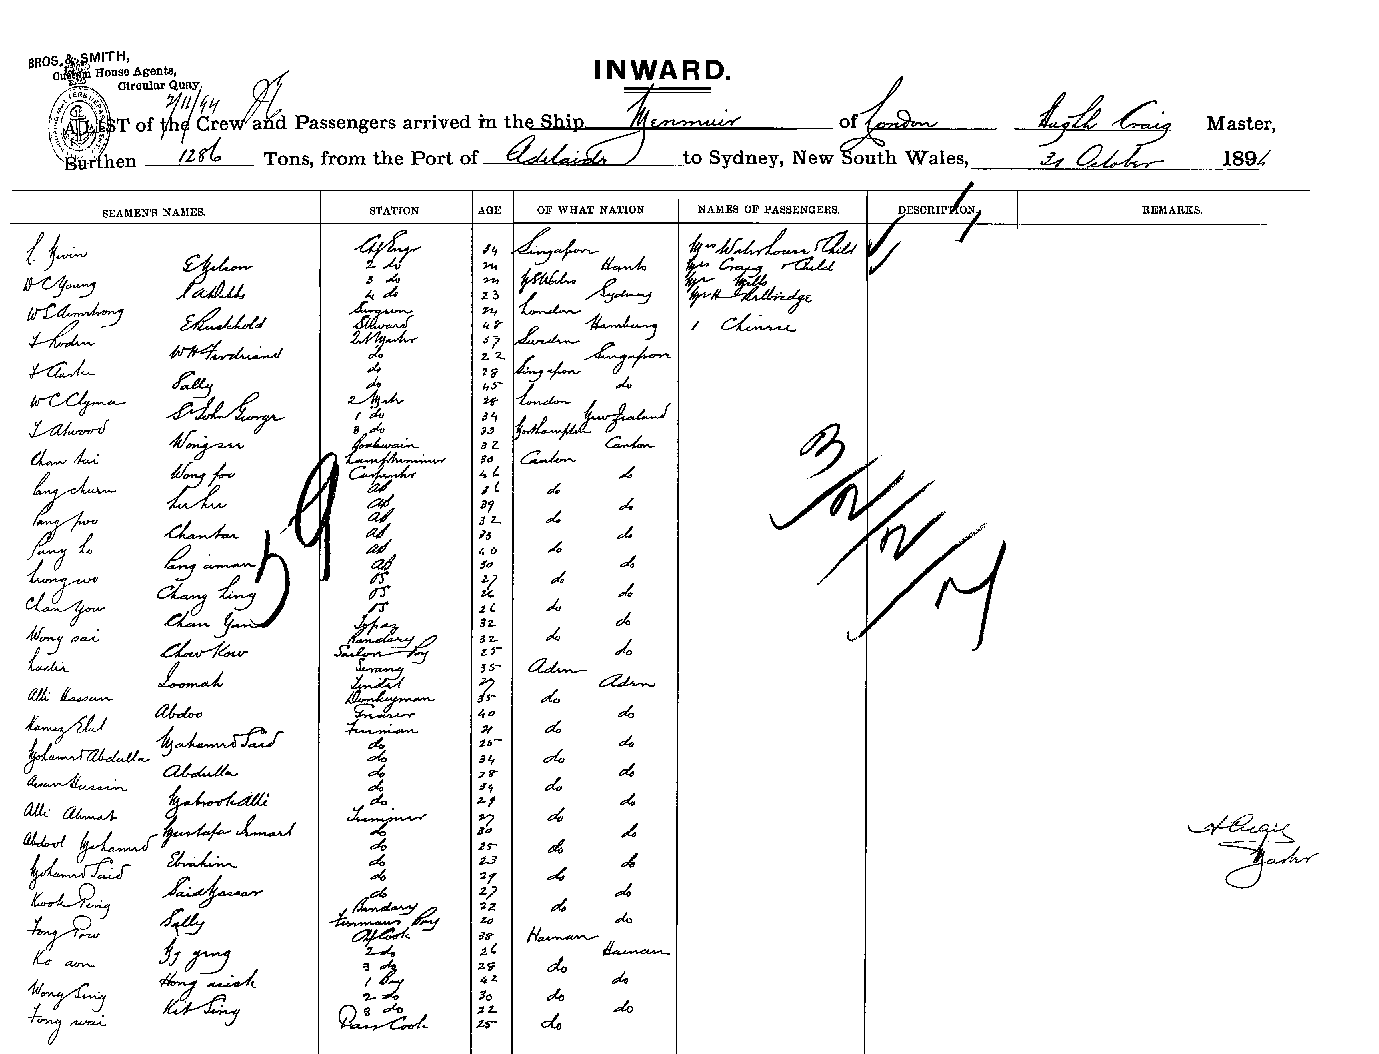 BROS. & SMITH,
Custom House Agents,
Circular Quay
2/11/94
INWARD.
LIST of the Crew and Passengers arrived in the Ship Menmuir of London Hugh Craig Master,
Burthen 1286 Tons, from the Port of Adelaide to Sydney, New South Wales, 31 October 1894
SEAMEN'S NAMES. STATION AGE OF WHAT NATION NAMES OF PASSENGERS. DESCRIPTION. REMARKS.
Ch Engr 34 Singapore Mrs Waterhouse & Child
E Nelson 2 do Hants Mrs Craig & Child
D C Young 3 do N S Wales Mr Mills
4 do 23 Sydney Mr H
W S Armstrong Surgeon 24 London
E Ruckhold Steward 48 Hamburg 1 Chinese
57 Sweden
W H Ferdinand do 22 Singapore
do 28 Singapore
Sally do 45 do
W C Clymer 28 London
St John George 1 do 34 New Zealand
T Atwood 3 do 33 Northampton
Wongsee Boatswain 32 Canton
Chan tai Lamptrimmer 30 Canton
Wong foo Carpenter 46 do
AB 36 do
AB 39 do
AB 32 do
Chantar AB 33 do
AB 40 do
AB 30 do
OS 27 do
Chang Ling OS 26 do
Chan You OS 26 do
Chan Yan Topaz 32 do
Wong sai Bandary 32 do
Chow Kow Saloon Boy 25 do
Serang 35 Aden
Loomah Tindal 27 Aden
Alli Hassan Donkeyman 35 do
Abdoo 40 do
Fireman 21 do
Mahamed Said do 25 do
Mohamed Abdulla do 34 do
Abdulla do 28 do
Hussin do 34 do
Mabrook Alli do 29 do
Alli Ahmat Trimmer 27 do
Mustafa Ismart do 30 do
Abdool Mohamed do 25 do
Ebrahim do 23 do
Mohamed Said do 29 do
Said Nassar do 27 do
Kwok Ping Bandary 22 do
Sally Firemans Boy 20 do
Fong Pow Ch Cook 38 Hainan
2 do 26 Hainan
Ko aon 3 do 28 do
1 Boy 42 do
Wong Sing 2 do 30 do
Kit Sing 3 do 22 do
Fong wai Pass Cook 25 do
59
3/2/2/7
H Craig
Master